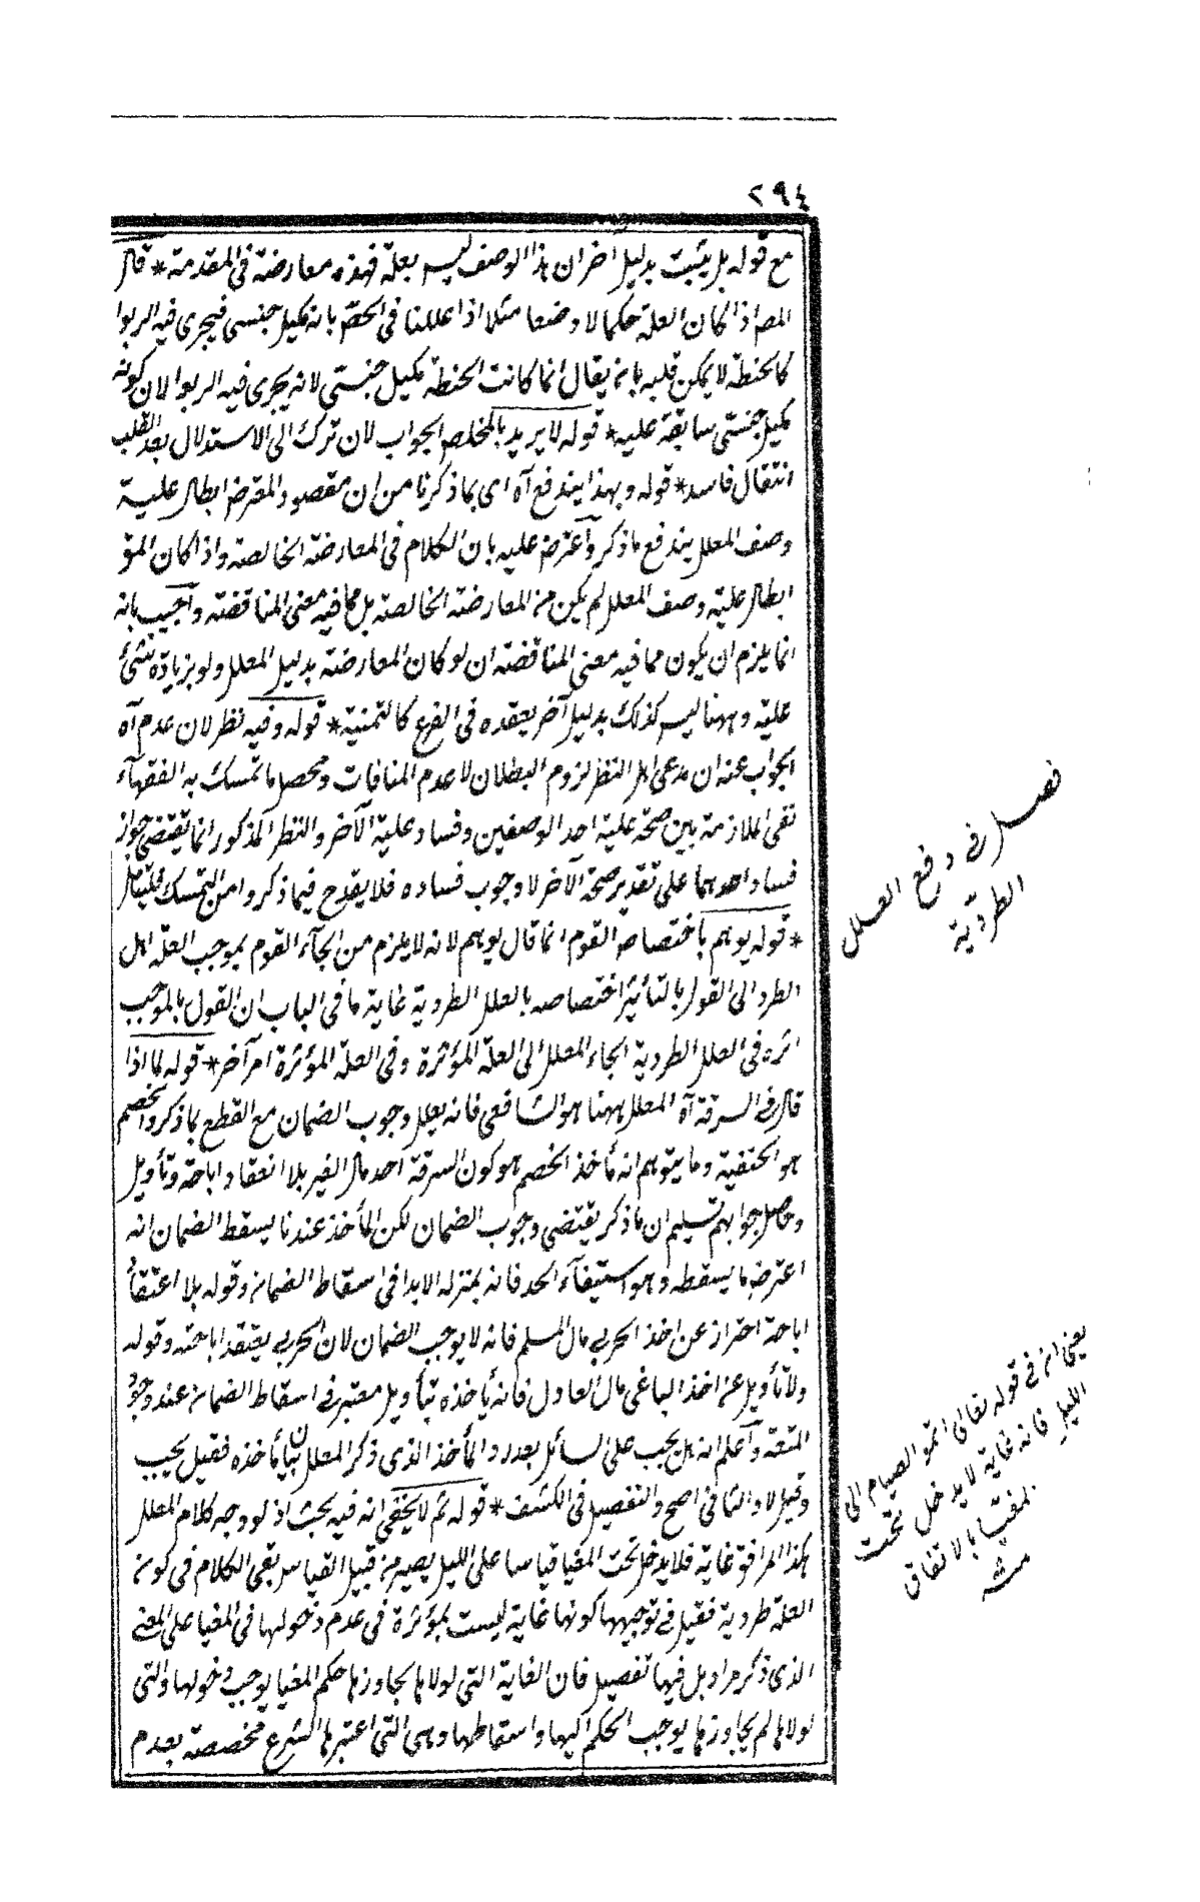 ٢٩٤
مع قوله بل يثبت بدليل آخر ان هذا الوصف ليس بعلة فهذه معارضة في المقدمة * قال
المص اذا كان العلة حكما لا وصفا مثلا اذا عللنا في الجص بانه مكيل جنسى فيجرى فيه الربوا
كالحنطة لا يمكن قلبه بانه يقال انما كانت الحنطة مكيل جنسى لانه يجرى فيه الربوا لان كونه
مكيل جنسى سابقة عليه * قوله لا يريد بالمخلص الجواب لان ترك الى الاستدلال بعد القلب
انتقال فاسد * قوله وبهذا يندفع آه اى بما ذكرنا من ان مقصود المعترض ابطال علية
وصف المعلل يندفع ما ذكر وأعترض عليه بان الكلام في المعارضة الخالصة واذا كان المؤ
ابطال علية وصف المعلل لم يكن من المعارضة الخالصة بل مما فيه معنى المناقضة وأجيب بانه
انما يلزم ان يكون مما فيه معنى المناقضة ان لو كان المعارضة بدليل المعلل ولو بزيادة شئ
عليه وههنا ليس كذلك بدليل آخر يعقده في الفرع كالثمنية * قوله وفيه نظر لان عدم آه
الجواب عنه ان مدعى اهل النظر لزوم البطلان لا عدم المنافات ومحصل ما تمسك به الفقهآء
نفى الملازمة بين صحة علية احد الوصفين وفساد علية الآخر والنظر المذكور انما يقتضى جواز
فساد احدهما على تقدير صحة الآخر لا وجوب فساده فلا يقدح فيما ذكروا من التمسك فليتأمل
* قوله يوهم باختصاص القوم انما قال يوهم لانه لا يلزم من الجآء القوم بموجب العلة اهل
الطرد الى القول بالتأثير اختصاصه بالعلل الطردية غاية ما في الباب ان القول بالموجب
اثره في العلل الطردية الجاء المعلل الى العلة المؤثرة وفي العلة المؤثرة امر آخر * قوله كما اذا
قال في السرقة آه المعلل ههنا هو الشافعى فانه يعلل وجوب الضمان مع القطع بما ذكر والخصم
هو الحنفية وما يتوهم انه مأخذ الخصم هو كون السرقة اخذ مال الغير بلا اعتقاد اباحة وتأويل
وحاصل جوابهم تسليم ان ما ذكر يقتضى وجوب الضمان لكن المأخذ عندنا يسقط الضمان انه
اعترض ما يسقطه وهو استيفآء الحد فانه بمنزلة الابراء في اسقاط الضمان وقوله بلا اعتقاد
اباحة احتراز عن اخذ الحربى مال المسلم فانه لا يوجب الضمان لان الحربى يعتقد اباحته وقوله
ولا تأويل عن اخذ الباغى مال العادل فانه يأخذه بتأويل معتبر في اسقاط الضمان عند وجود
المنعة وآعلم انه هل يجب على السائل بعد رد المأخذ الذى ذكر المعلل بيان مأخذه فقيل يجب
وقيل لا والثانى اصح والتفصيل في الكشف * قوله ثم لا يخفى انه فيه بحث اذ لو وجه كلام المعلل
هكذا المرافق غاية فلا يدخل تحت المغيا قياسا على الليل يصير من قبيل القياس بقى الكلام في كونه
العلة طردية فقيل في توجيهها كونها غاية ليست بمؤثرة في عدم دخولها في المغيا على المعنى
الذى ذكر مراد بل فيها تفصيل فان الغاية التى لولاها لجاوزها حكم المغيا يوجب دخولها والتى
لولاها لم يجاوزها يوجب الحكم اليها واسقاطها وهى التى اعتبرها الشرع مخصصة بعدم
فصل في دفع العلل
الطردية
يعنى انه في قوله تعالى اتموا الصيام الى
الليل فانه غاية لا يدخل تحت
المغيا بالاتفاق
منه